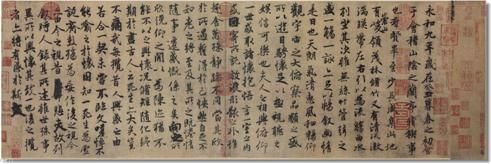 永和九年歲在癸丑暮春之初會
于會稽山陰之蘭亭脩稧事
也群賢畢至少長咸集此地
有峻領茂林脩竹又有清流激
湍暎帶左右引以為流觴曲水
列坐其次雖無絲竹管弦之
盛一觴一詠亦足以暢敘幽情
是日也天朗氣清惠風和暢仰
觀宇宙之大俯察品類之盛
所以遊目騁懷足以極視聽之
娛信可樂也夫人之相與俯仰
一世或取諸懷抱悟言一室之內
或因寄所託放浪形骸之外雖
趣舍萬殊靜躁不同當其欣
於所遇暫得於己怏然自足不
知老之將至及其所之既惓情
隨事遷感慨係之矣向之所
欣俛仰之間以為陳迹猶不
能不以之興懷況脩短隨化終
期於盡古人云死生亦大矣豈
不痛哉每攬昔人興感之由
若合一契未嘗不臨文嗟悼不
能喻之於懷固知一死生為虛
誕齊彭殤為妄作後之視今
亦由今之視昔悲夫故列
敘時人錄其所述雖世殊事
異所以興懷其致一也後之攬
者亦將有感於斯文